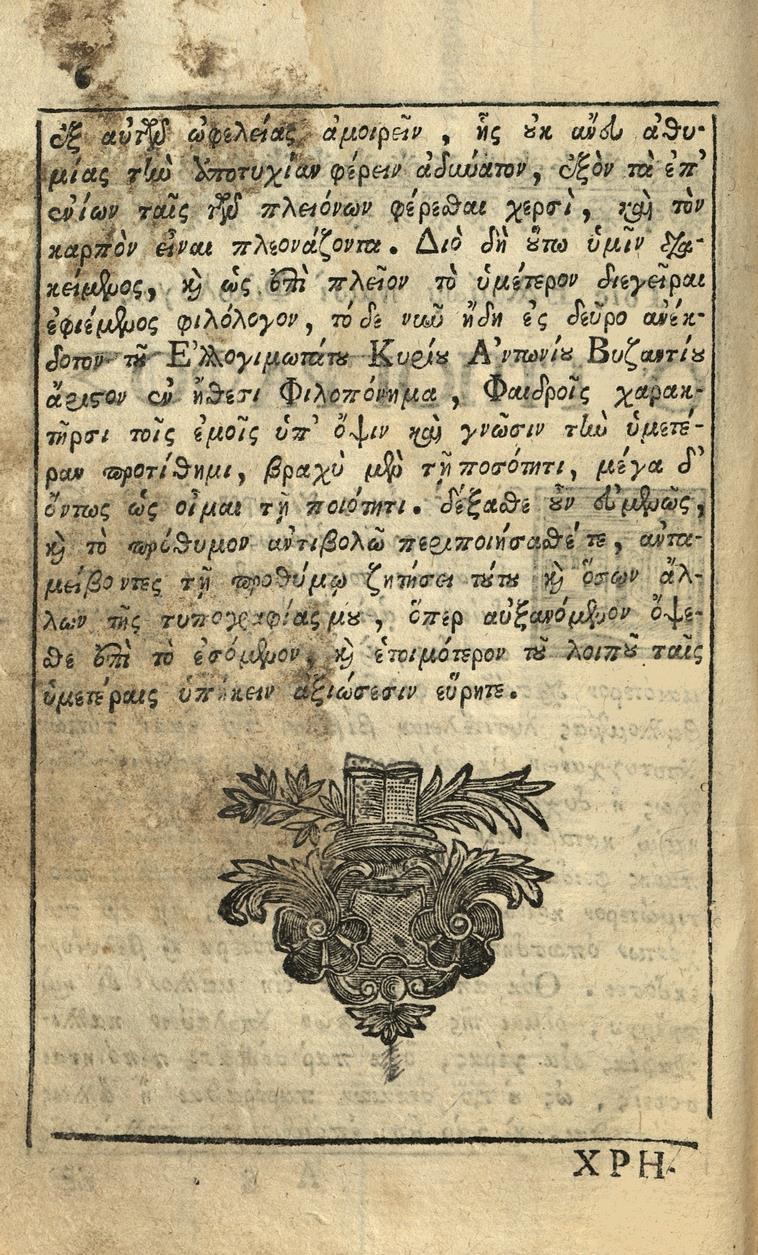 6
ἐξ αὐτῶν ὠφελείας ἀμοιρεῖν, ἧς οὐκ ἄνευ ἀθυ-
μίας τὴν ἀποτυχίαν φέρειν ἀδύνατον, ἐξὸν τὰ ἐπ'
ἐνίων ταῖς τῶν πλειόνων φέρεσθαι χερσὶ, καὶ τὸν
καρπὸν εἶναι πλεονάζοντα. Διὸ δὴ οὕτω ὑμῖν δια-
κείμενος, καὶ ὡς ἐπὶ πλεῖον τὸ ὑμέτερον διεγεῖραι
ἐφιέμενος φιλόλογον, τό δε νῦν ἤδη ἐς δεῦρο ἀνέκ-
δοτον τοῦ Ἐλλογιμωτάτου Κυρίου Ἀντωνίου Βυζαντίου
ἄριστον ἐν ἤθεσι Φιλοπόνημα, Φαιδροῖς χαρακ-
τῆρσι τοῖς ἐμοῖς ὑπ' ὄψιν καὶ γνῶσιν τὴν ὑμετέ-
ραν προτίθημι, βραχὺ μὲν τῇ ποσότητι, μέγα δ'
ὄντως ὡς οἶμαι τῇ ποιότητι. δέξασθε οὖν εὐμενῶς,
καὶ τὸ πρόθυμον ἀντιβολῶ περιποιήσασθέ τε, ἀντα-
μείβοντες τῇ προθύμῳ ζητήσει τούτου καὶ ὅσων ἄλ-
λων τῆς τυπογραφίας μου, ὅπερ αὐξανόμενον ὄψε-
σθε ἐπὶ τὸ ἐσόμενον, καὶ ἑτοιμότερον τοῦ λοιποῦ ταῖς
ὑμετέραις ὑπείκειν ἀξιώσεσιν εὕρητε.
ΧΡΗ-